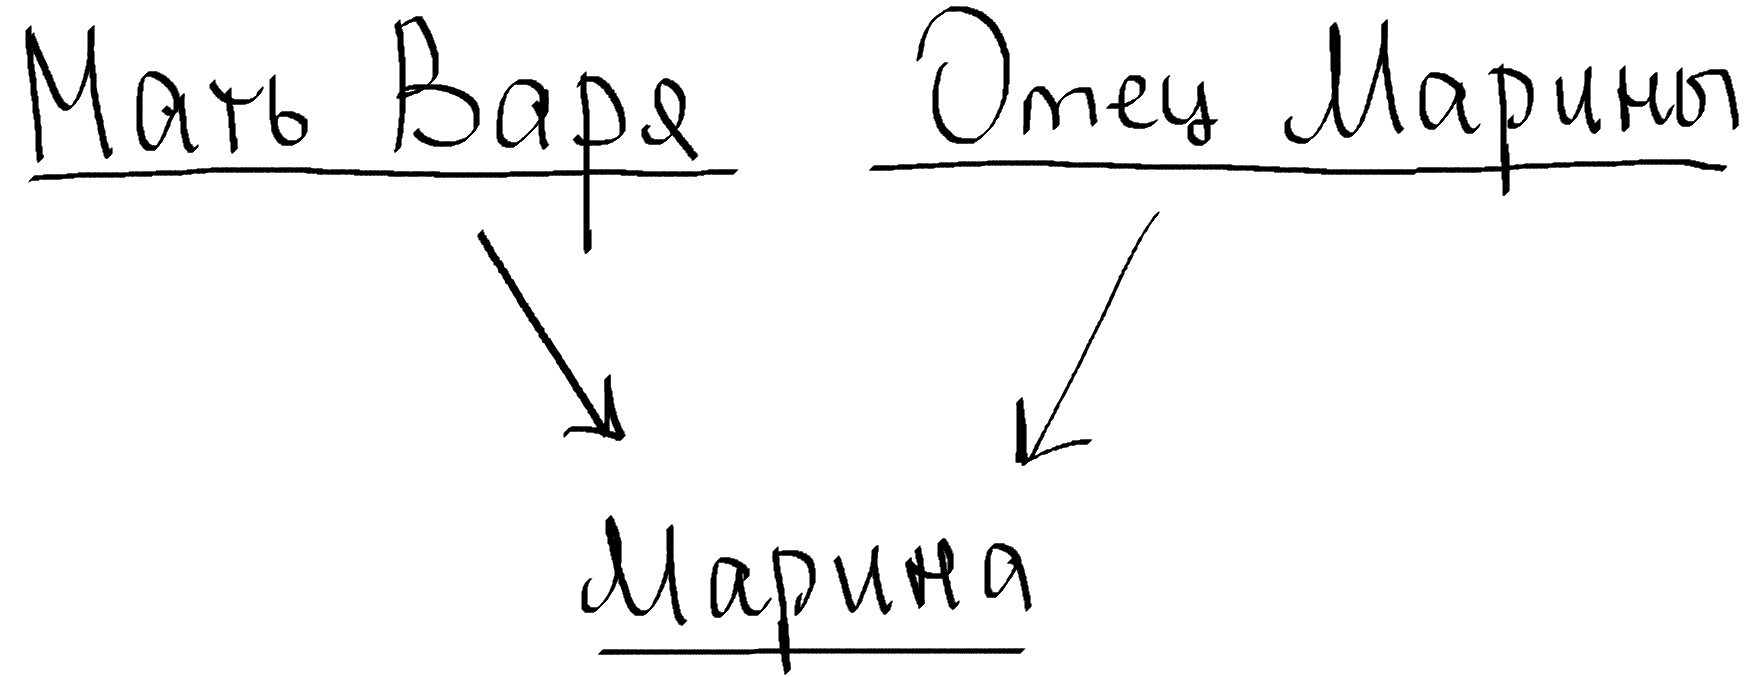 Мать Варя Отец Марины
Марина